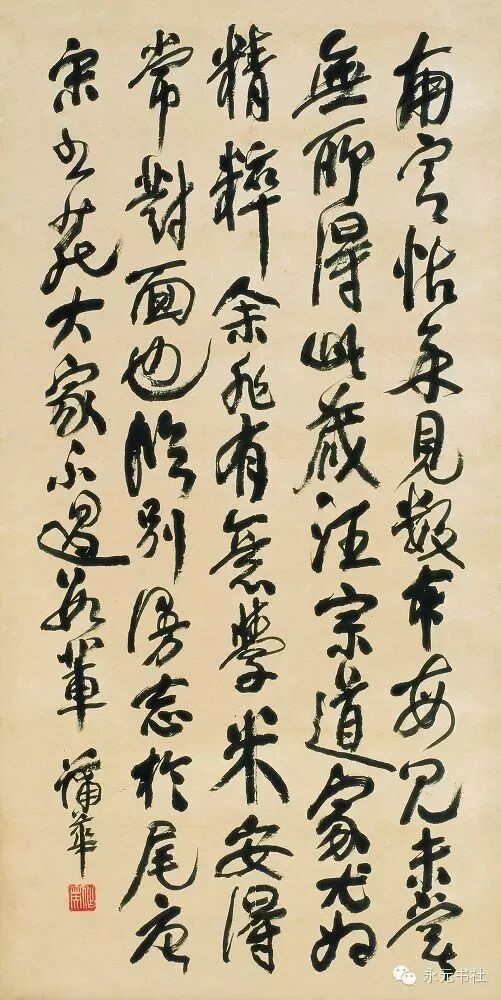 南宮帖余見數本每見未嘗
無所得此藏汪宗道家尤為
精粹余非有意學米安得
常對面也臨別漫志於尾唐
宋書苑大家不過數輩
蒲華
永元书社